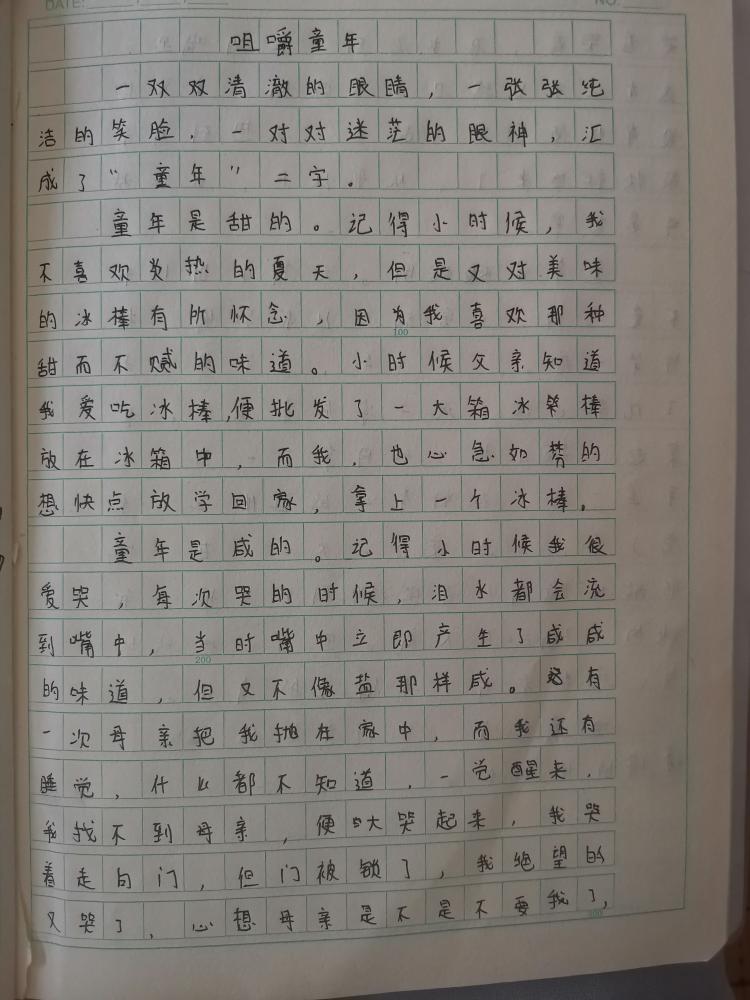 DATE: NO.
咀嚼童年
一双双清澈的眼睛，一张张纯
洁的笑脸，一对对迷茫的眼神，汇
成了“童年”二字。
童年是甜的。记得小时候，我
不喜欢炎热的夏天，但是又对美味
的冰棒有所怀念，因为我喜欢那种
100
甜而不腻的味道。小时候父亲知道
我爱吃冰棒，便批发了一大箱冰棒
放在冰箱中，而我，也心急如焚的
想快点放学回家，拿上一个冰棒。
童年是咸的。记得小时候我很
爱哭，每次哭的时候，泪水都会流
到嘴中，当时嘴中立即产生了咸咸
200
的味道，但又不像盐那样咸。记有
一次母亲把我抛在家中，而我还有
睡觉，什么都不知道，一觉醒来，
我找不到母亲，便大哭起来，我哭
着走向门，但门被锁了，我绝望的
又哭了，心想母亲是不是不要我了，
300